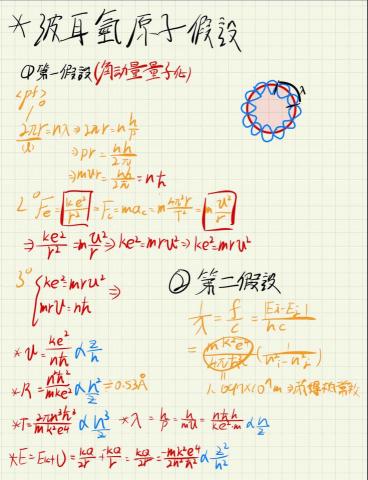 * 波耳氫原子假設
① 第一假設 (角動量量子化)
<pf>
1°
2πr = nλ ⇒ 2πr = n h/p
⇒ pr = nh/2π
⇒ mvr = nh/2π = nħ
2° Fe = ke²/r² = Fc = mac = m 4π²r/T² = m v²/r
⇒ ke²/r² = m v²/r ⇒ ke² = mrv² ⇒ ke² = mrv²
3° { ke² = mrv²
mrv = nħ ⇒
* v = ke²/nħ ∝ z/n
* R = n²ħ²/mke² ∝ n²/z = 0.53Å
* T = 2πn³ħ³/mk²e⁴ ∝ n³/z
* λ = h/p = h/mv = nħh/ke²m ∝ n/z
* E = Ek+U = = -mk²e⁴/2n²ħ² ∝ z²/n²
② 第二假設
1/λ = f/c = |Ei-Ej|/hc
= mk²e⁴/4πħ³c (
1.097×10⁷m ⇒
λ